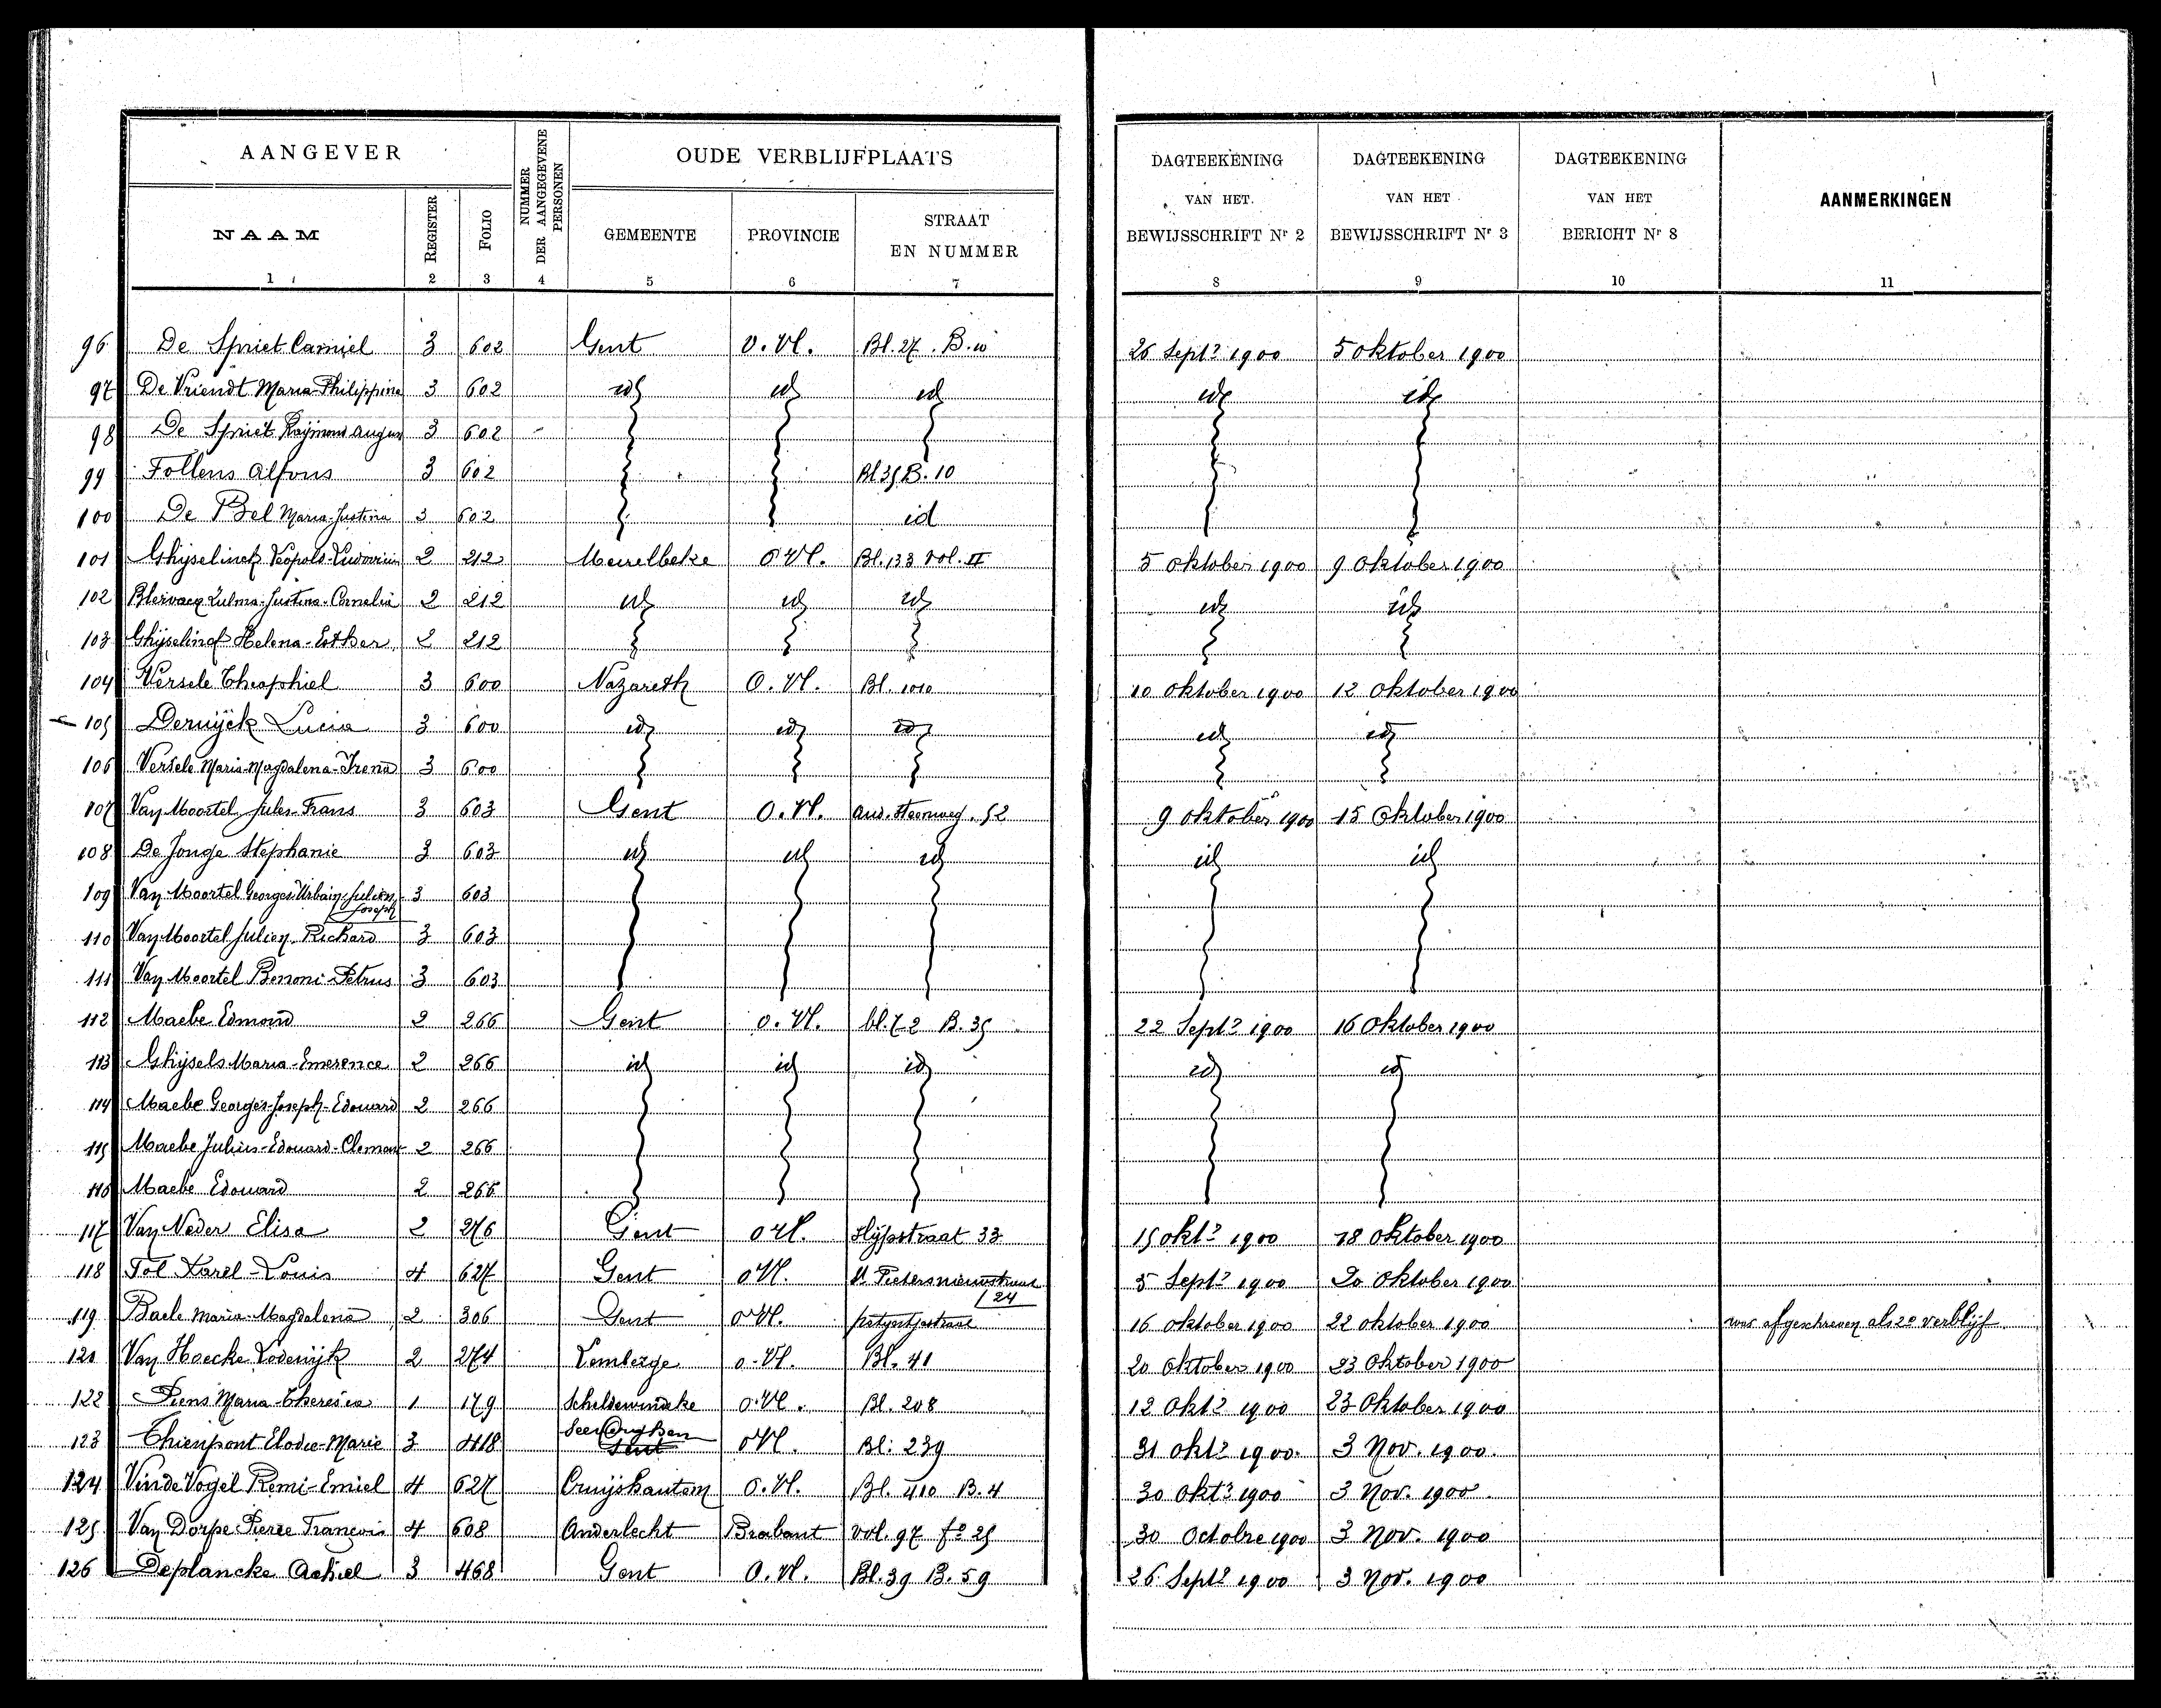 AANGEVER
NUMMER DER AANGEGEVENE PERSONEN
OUDE VERBLIJFPLAATS
DAGTEEKENING VAN HET BEWIJSSCHRIFT Nr 2
DAGTEEKENING VAN HET BEWIJSSCHRIFT Nr 3
DAGTEEKENING VAN HET BERICHT Nr 8
AANMERKINGEN
NAAM REGISTER FOLIO GEMEENTE PROVINCIE STRAAT EN NUMMER
1 2 3 4 5 6 7 8 9 10 11
96 De Spriet Camiel 3 602 Gent O. Vl. Bl. 27. B. 10 26 Septr 1900 5 Oktober 1900
97 De Vriendt Maria-Philippina 3 602 id id id id id
98 De Spriet Raymond August 3 602
99 Follens Alfons 3 602 Bl 35 B. 10
100 De Bel Maria-Justina 3 602 id
101 Ghijselinck Leopold-Ludovicus 2 212 Meirelbeke O Vl. Bl. 133 Vol. II 5 Oktober 1900 9 Oktober 1900
102 Zulma-Justina-Cornelia 2 212 id id id id id
103 Ghijselinck Helena-Esther 2 212
104 Versele Theophiel 3 600 Nazareth O. Vl. Bl. 1010 10 Oktober 1900 12 Oktober 1900
105 Deruyck Lucia 3 600 id id id id id
106 Versele Maria-Magdalena-Irena 3 600
107 Van Moortel Jules-Frans 3 603 Gent O. Vl. Oud. Steenweg. 52 9 Oktober 1900 15 Oktober 1900
108 De Jonge Stephanie 3 603 id id id id id
109 Van Moortel Georges-Urbain-Julien Joseph 3 603
110 Van Moortel Julien Richard 3 603
111 Van Moortel Benoni-Petrus 3 603
112 Maebe Edmond 2 266 Gent O. Vl. bl. 72 B. 35 22 Septr 1900 16 Oktober 1900
113 Ghijsels Maria-Emerence 2 266 id id id id id
114 Maebe Georges-Joseph-Edouard 2 266
115 Maebe Julius-Edouard-Clement 2 266
116 Maebe Edouard 2 266
117 Van Neder Elisa 2 276 Gent O Vl. Slijpstraat 33 15 Oktr 1900 18 Oktober 1900
118 Tol Karel-Louis 4 627 Gent O Vl. St Pietersnieuwstraat 24 5 Septr 1900 20 Oktober 1900
119 Baele Maria-Magdalena 2 306 Gent O Vl. 16 Oktober 1900 22 Oktober 1900 was afgeschreven als 2e verblijf
121 Van Hoecke Lodewijk 2 274 Lemberge O. Vl. Bl. 41 20 Oktober 1900 23 Oktober 1900
122 Piens Maria-Theresia 1 179 Scheldewindeke O. Vl. Bl. 208 12 Oktr 1900 23 Oktober 1900
123 Thienpont Elodie-Marie 3 418 O Vl. Bl. 239 31 Oktr 1900. 3 Nov. 1900.
124 Vinde Vogel Remi-Emiel 4 627 Cruijshautem O. Vl. Bl. 410 B. 4 30 Oktr 1900 3 Nov. 1900.
125 Van Dorpe Pierre François 4 608 Anderlecht Brabant Vol. 97 fo 25 30 Octobre 1900 3 Nov. 1900
126 Deplancke Achiel 3 468 Gent O. Vl. Bl. 39 B. 59 26 Septr 1900 3 Nov. 1900